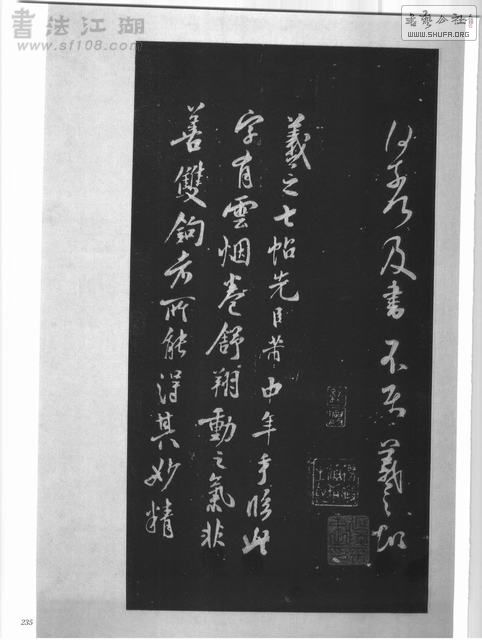 及書不羲之
羲之七帖先臣芾中年手臨此
字有雲烟卷舒翔動之氣非
善雙鉤者所能得其妙精
書法江湖
www.sf108.com
書藝公社
WWW.SHUFA.ORG
235